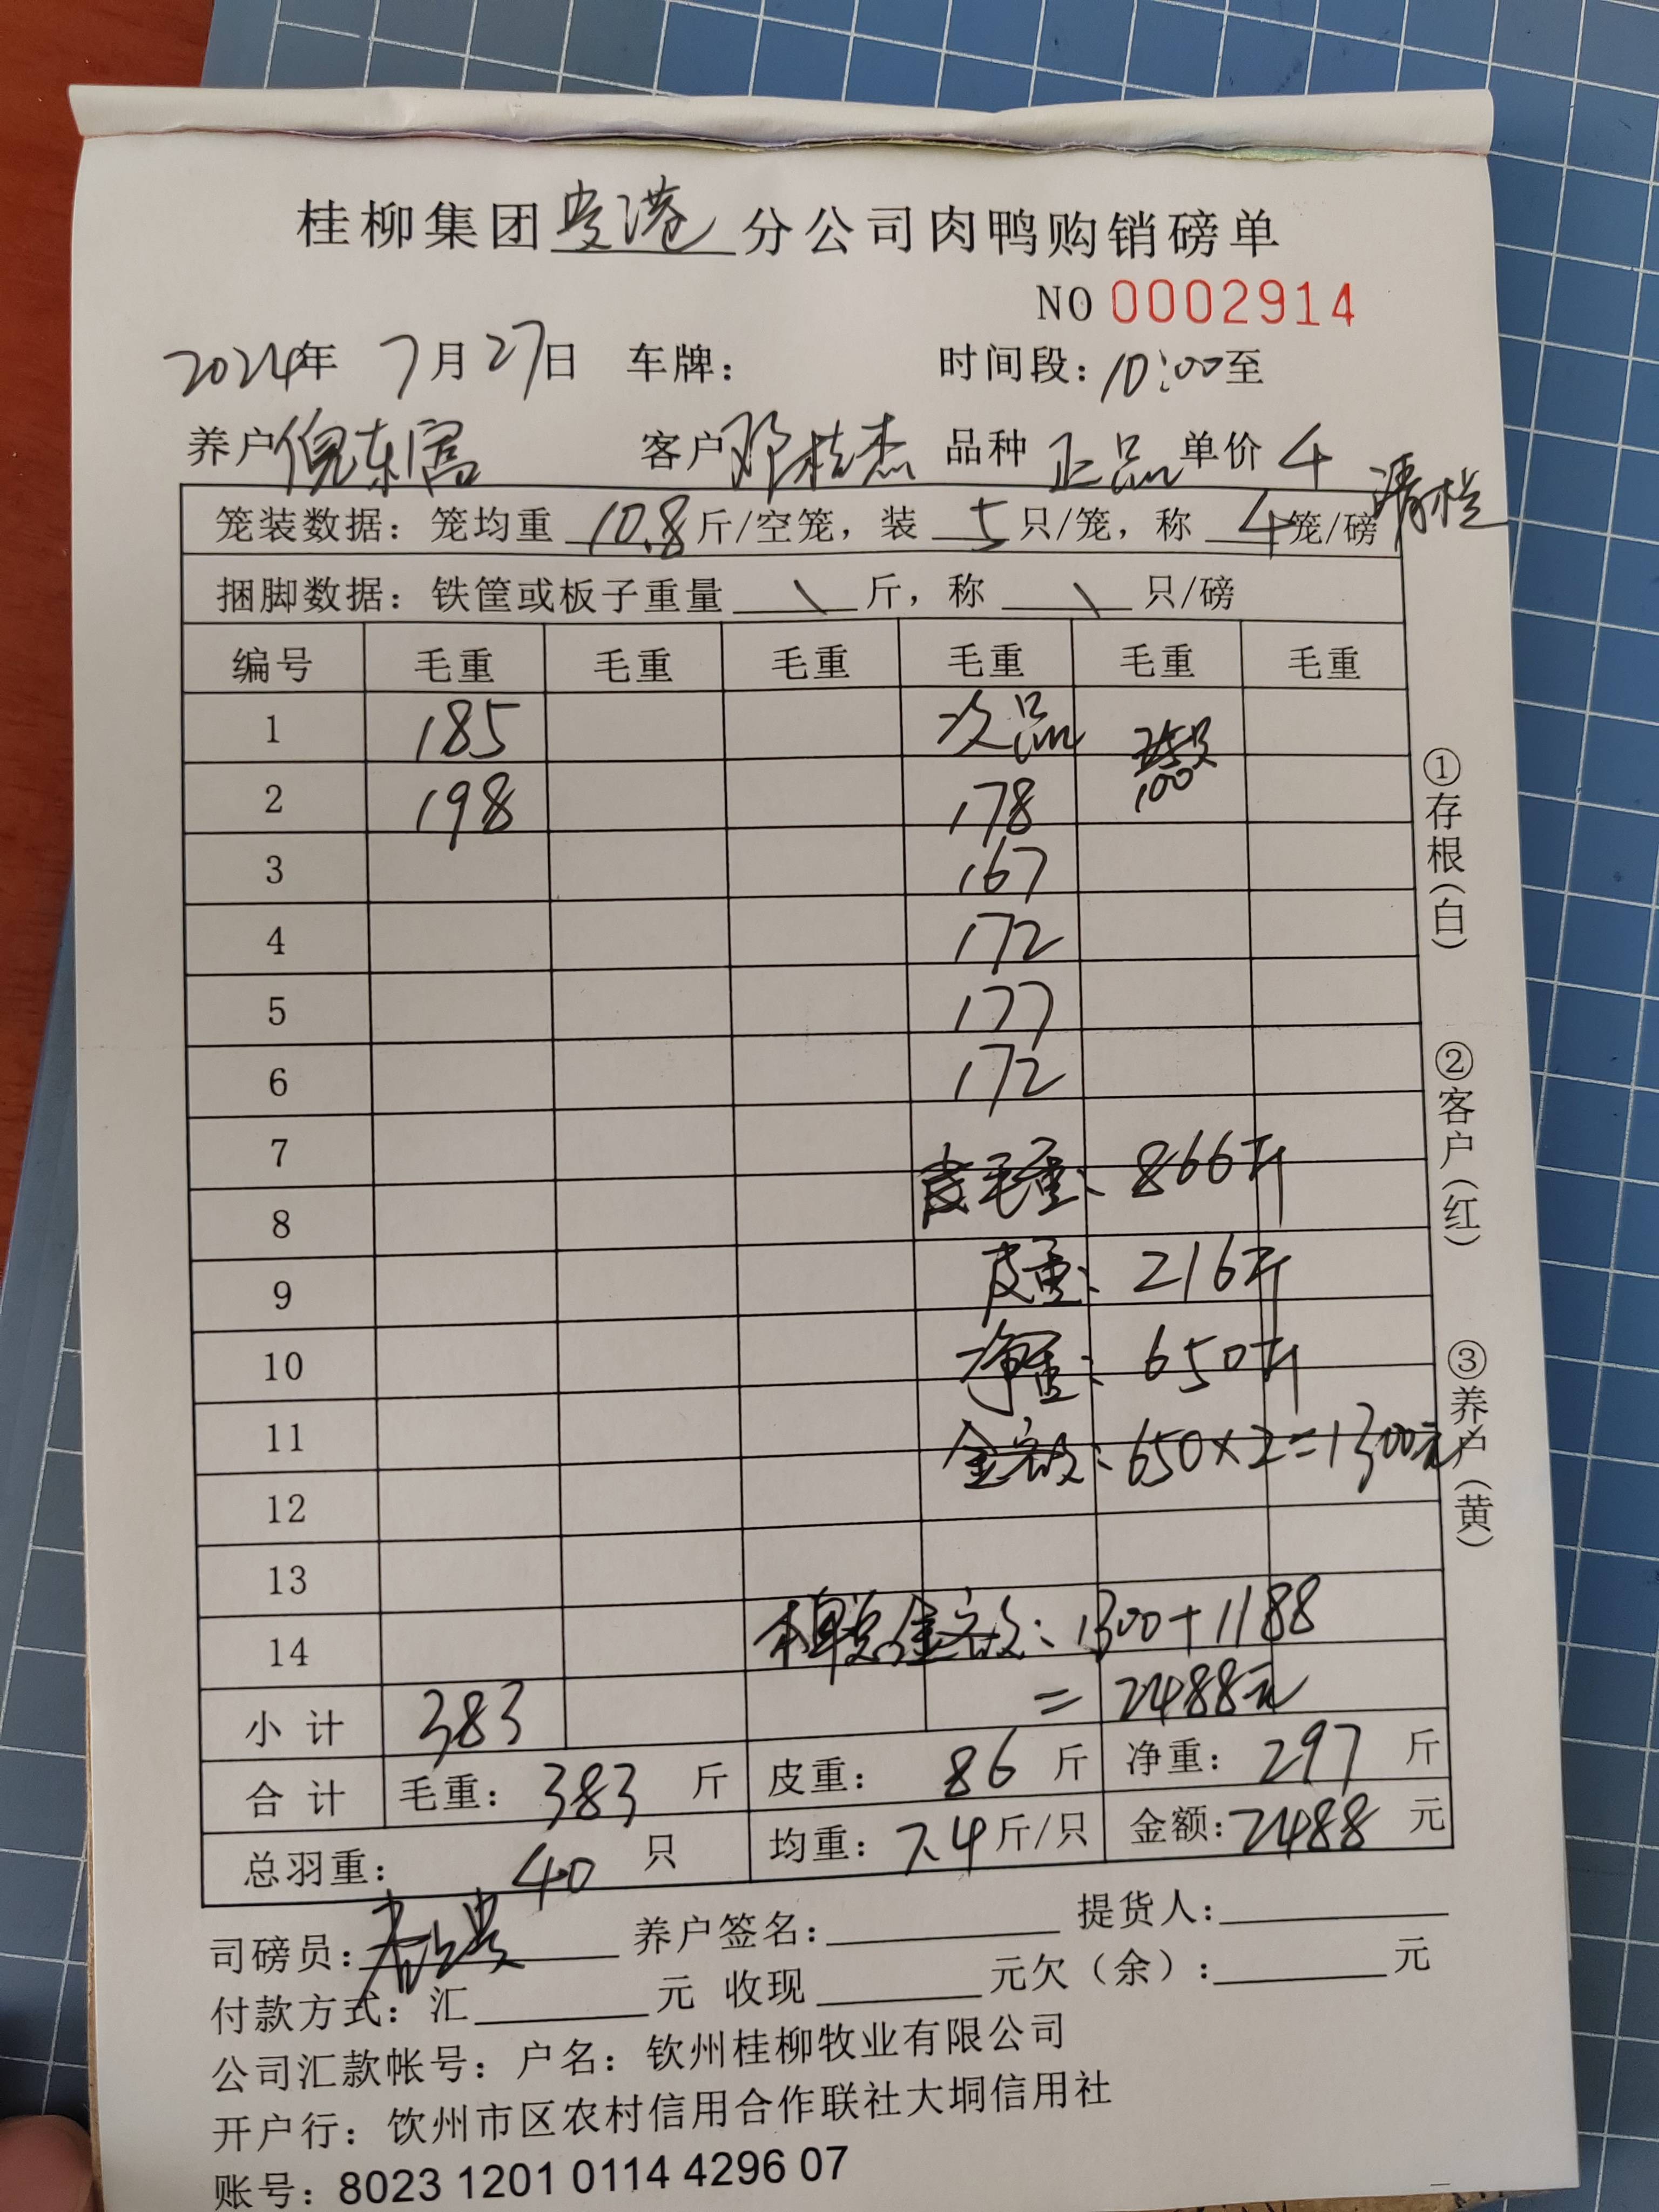 桂柳集团贵港分公司肉鸭购销磅单
NO 0002914
2024年 7月27日 车牌： 时间段：10:00至
养户倪东富 客户邓桂杰 品种 正品 单价 4
清栏
笼装数据：笼均重 10.8斤/空笼，装 5 只/笼，称 4笼/磅
捆脚数据：铁筐或板子重量 \ 斤，称 \ 只/磅
编号 毛重 毛重 毛重 毛重 毛重 毛重
1 185 次品
2 198 178 100
3 167
4 172
5 177
6 172
7
毛重：866斤
8
9 皮重：216斤
10 净重：650斤
11 金额：650×2=1300元
12
13
14 本单总金额：1300+1188
小计 383 =2488元
合计 毛重：383 斤 皮重：86 斤 净重：297 斤
总羽重：40 只 均重：7.4斤/只 金额：2488 元
司磅员： 养户签名： 提货人：
付款方式：汇 元 收现 元欠（余）： 元
公司汇款帐号：户名：钦州桂柳牧业有限公司
开户行：饮州市区农村信用合作联社大垌信用社
账号：8023 1201 0114 4296 07
①存根（白）
②客户（红）
③养户（黄）